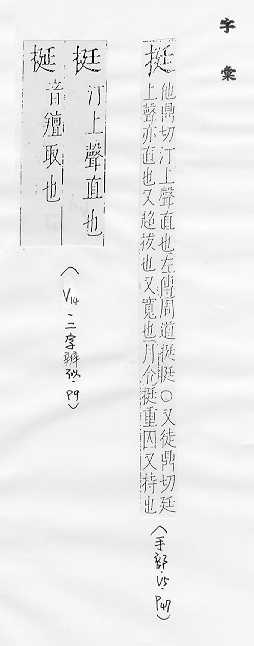 字彙
挺 他鼎切汀上聲直也左傳周道挺挺○又徒鼎切廷
上聲亦直也又超拔也又寬也月令挺重囚又持也
(手部·V5·P47)
挺 汀上聲直也
挻 音羶取也
(V14·二字辨似·P9)